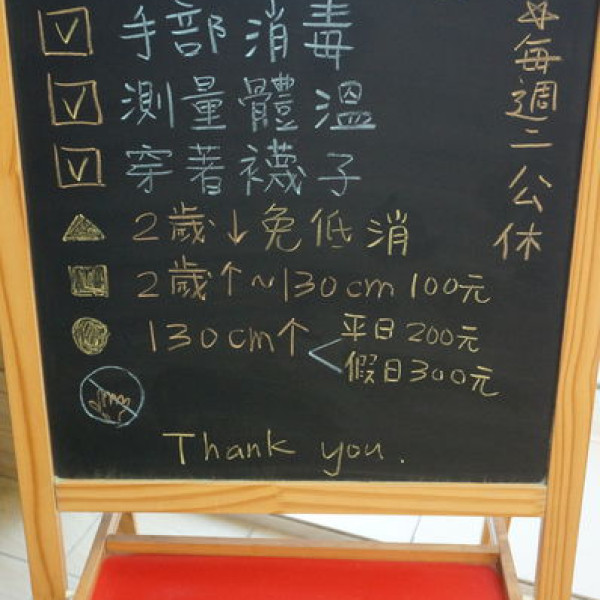 ☑ 手部消毒
☑ 測量體溫
☑ 穿著襪子
▲ 2歲↓免低消
■ 2歲↑~130cm 100元
● 130cm↑ < 平日200元
假日300元
Thank you.
☆每週二公休